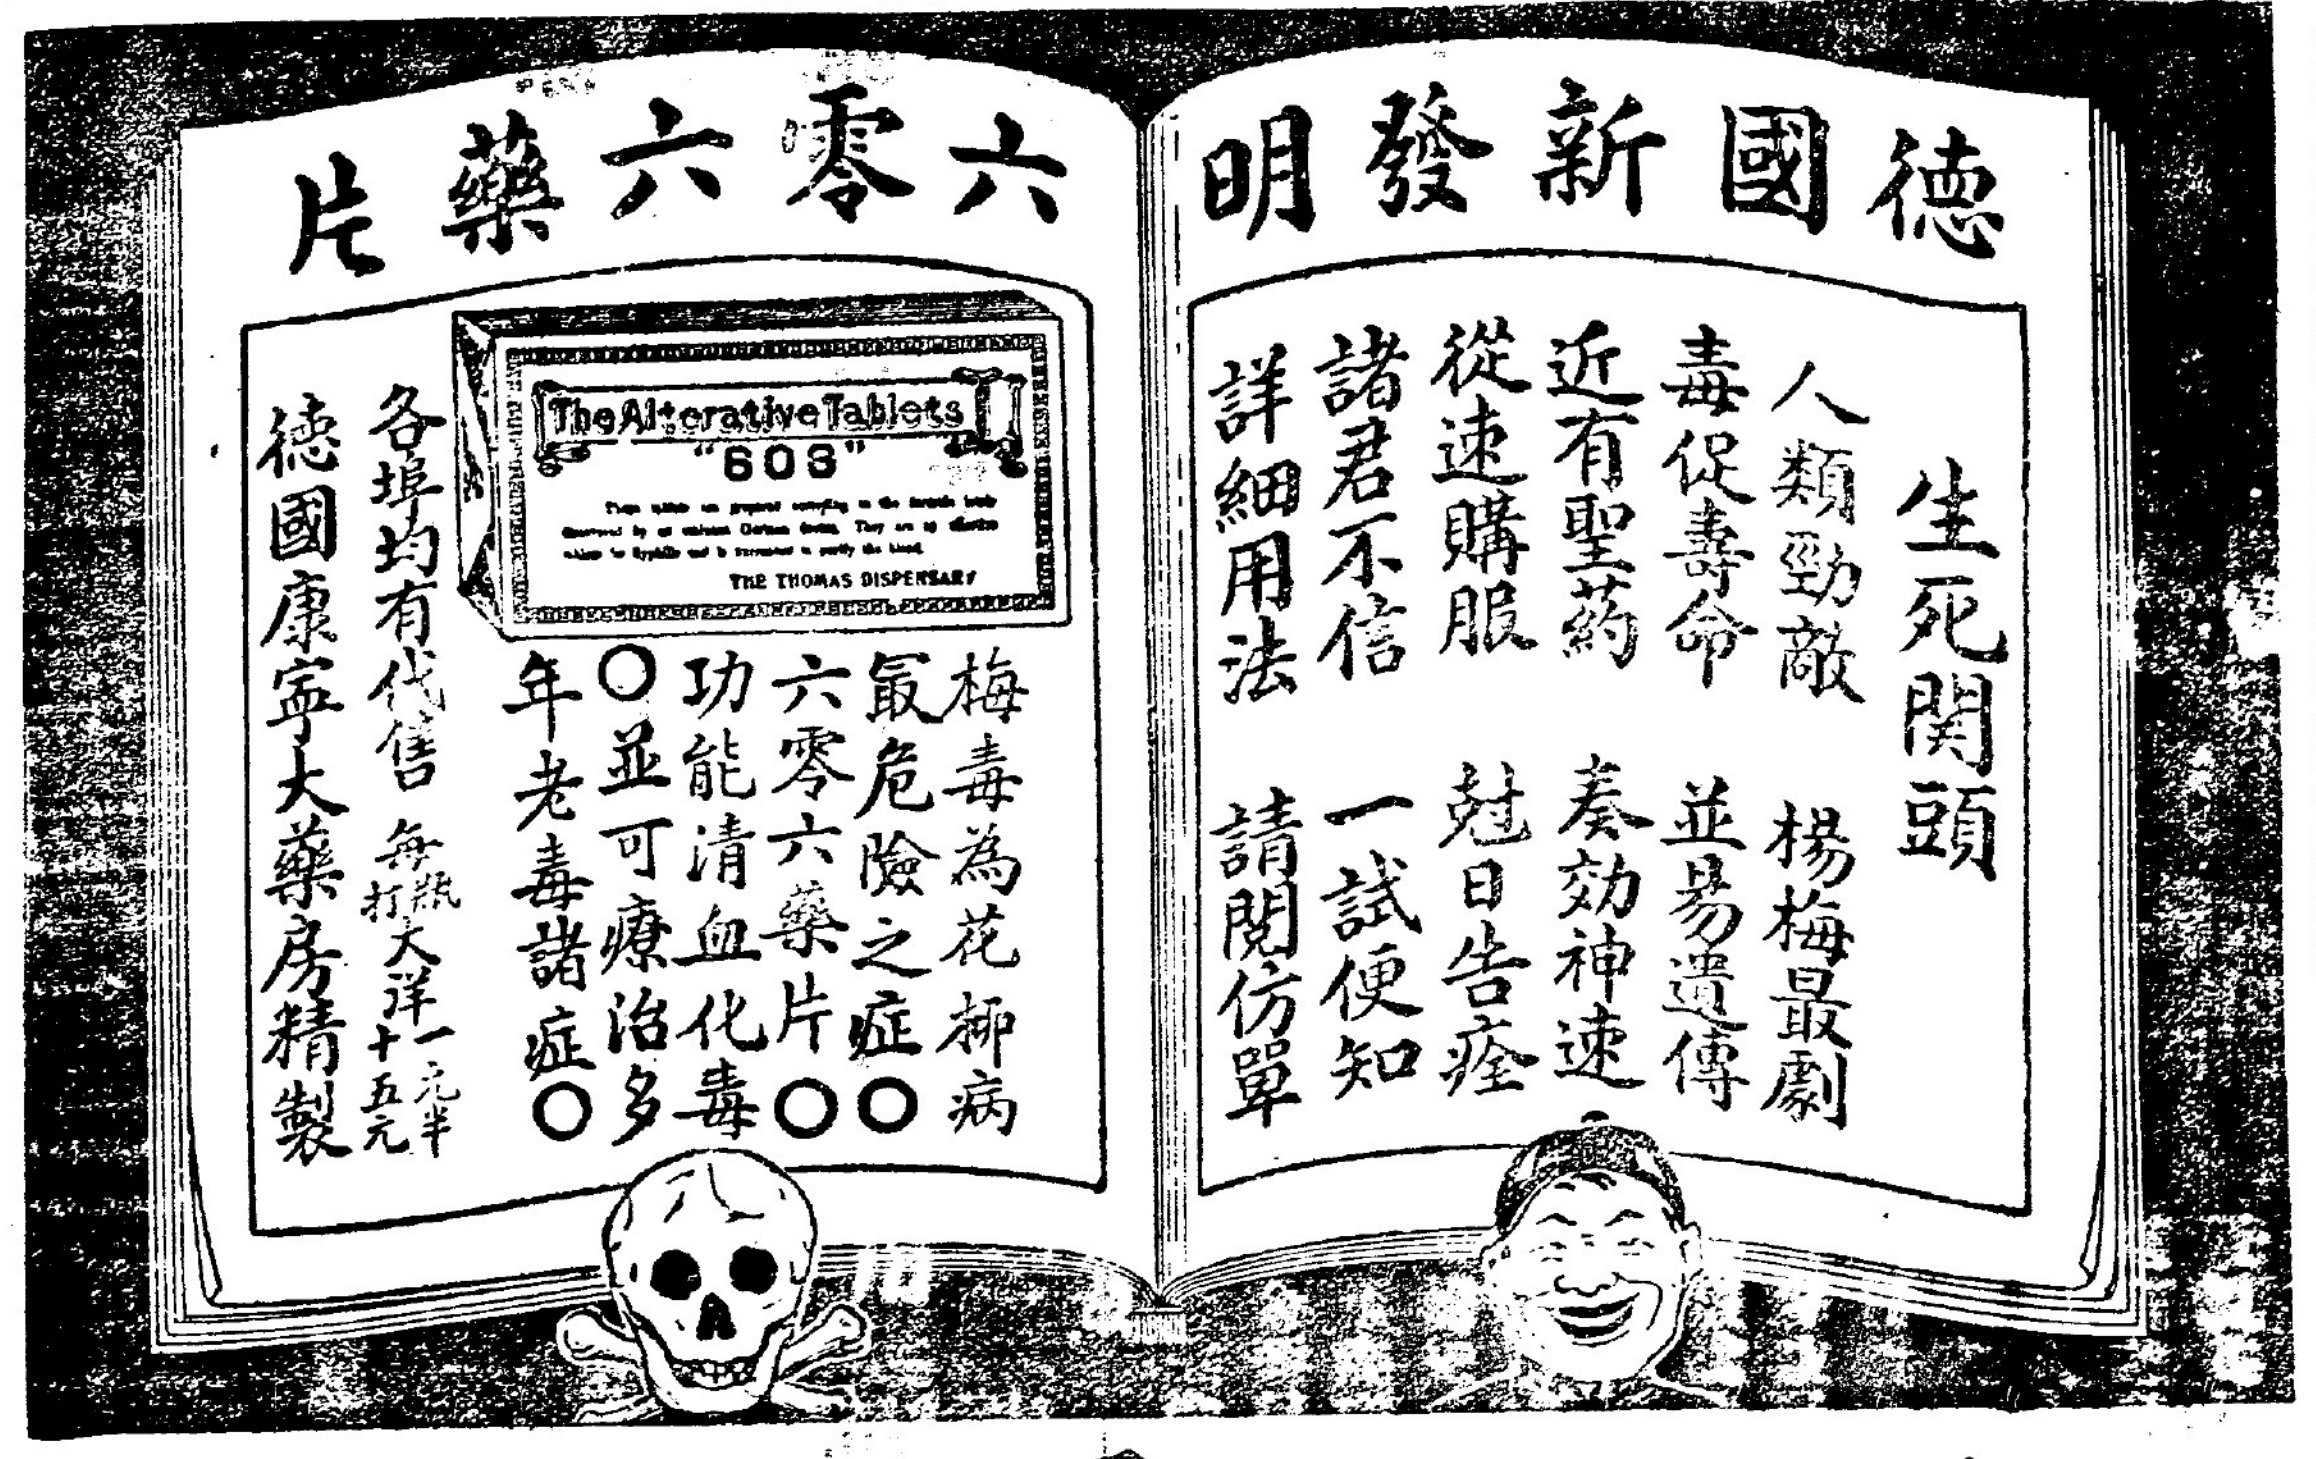 德國新發明
六零六藥片
生死関頭
人類勁敵 楊梅最劇
毒促壽命 並易遺傳
近有聖葯 奏効神速
從速購服 尅日告痊
諸君不信 一試便知
詳細用法 請閱仿單
The Alterative Tablets
"606"
THE THOMAS DISPENSARY
梅毒為花柳病
最危險之症〇
六零六藥片〇
功能清血化毒
〇並可療治多
年老毒諸症〇
各埠均有代售 每瓶大洋一元半
打 十五元
德國康寧大藥房精製